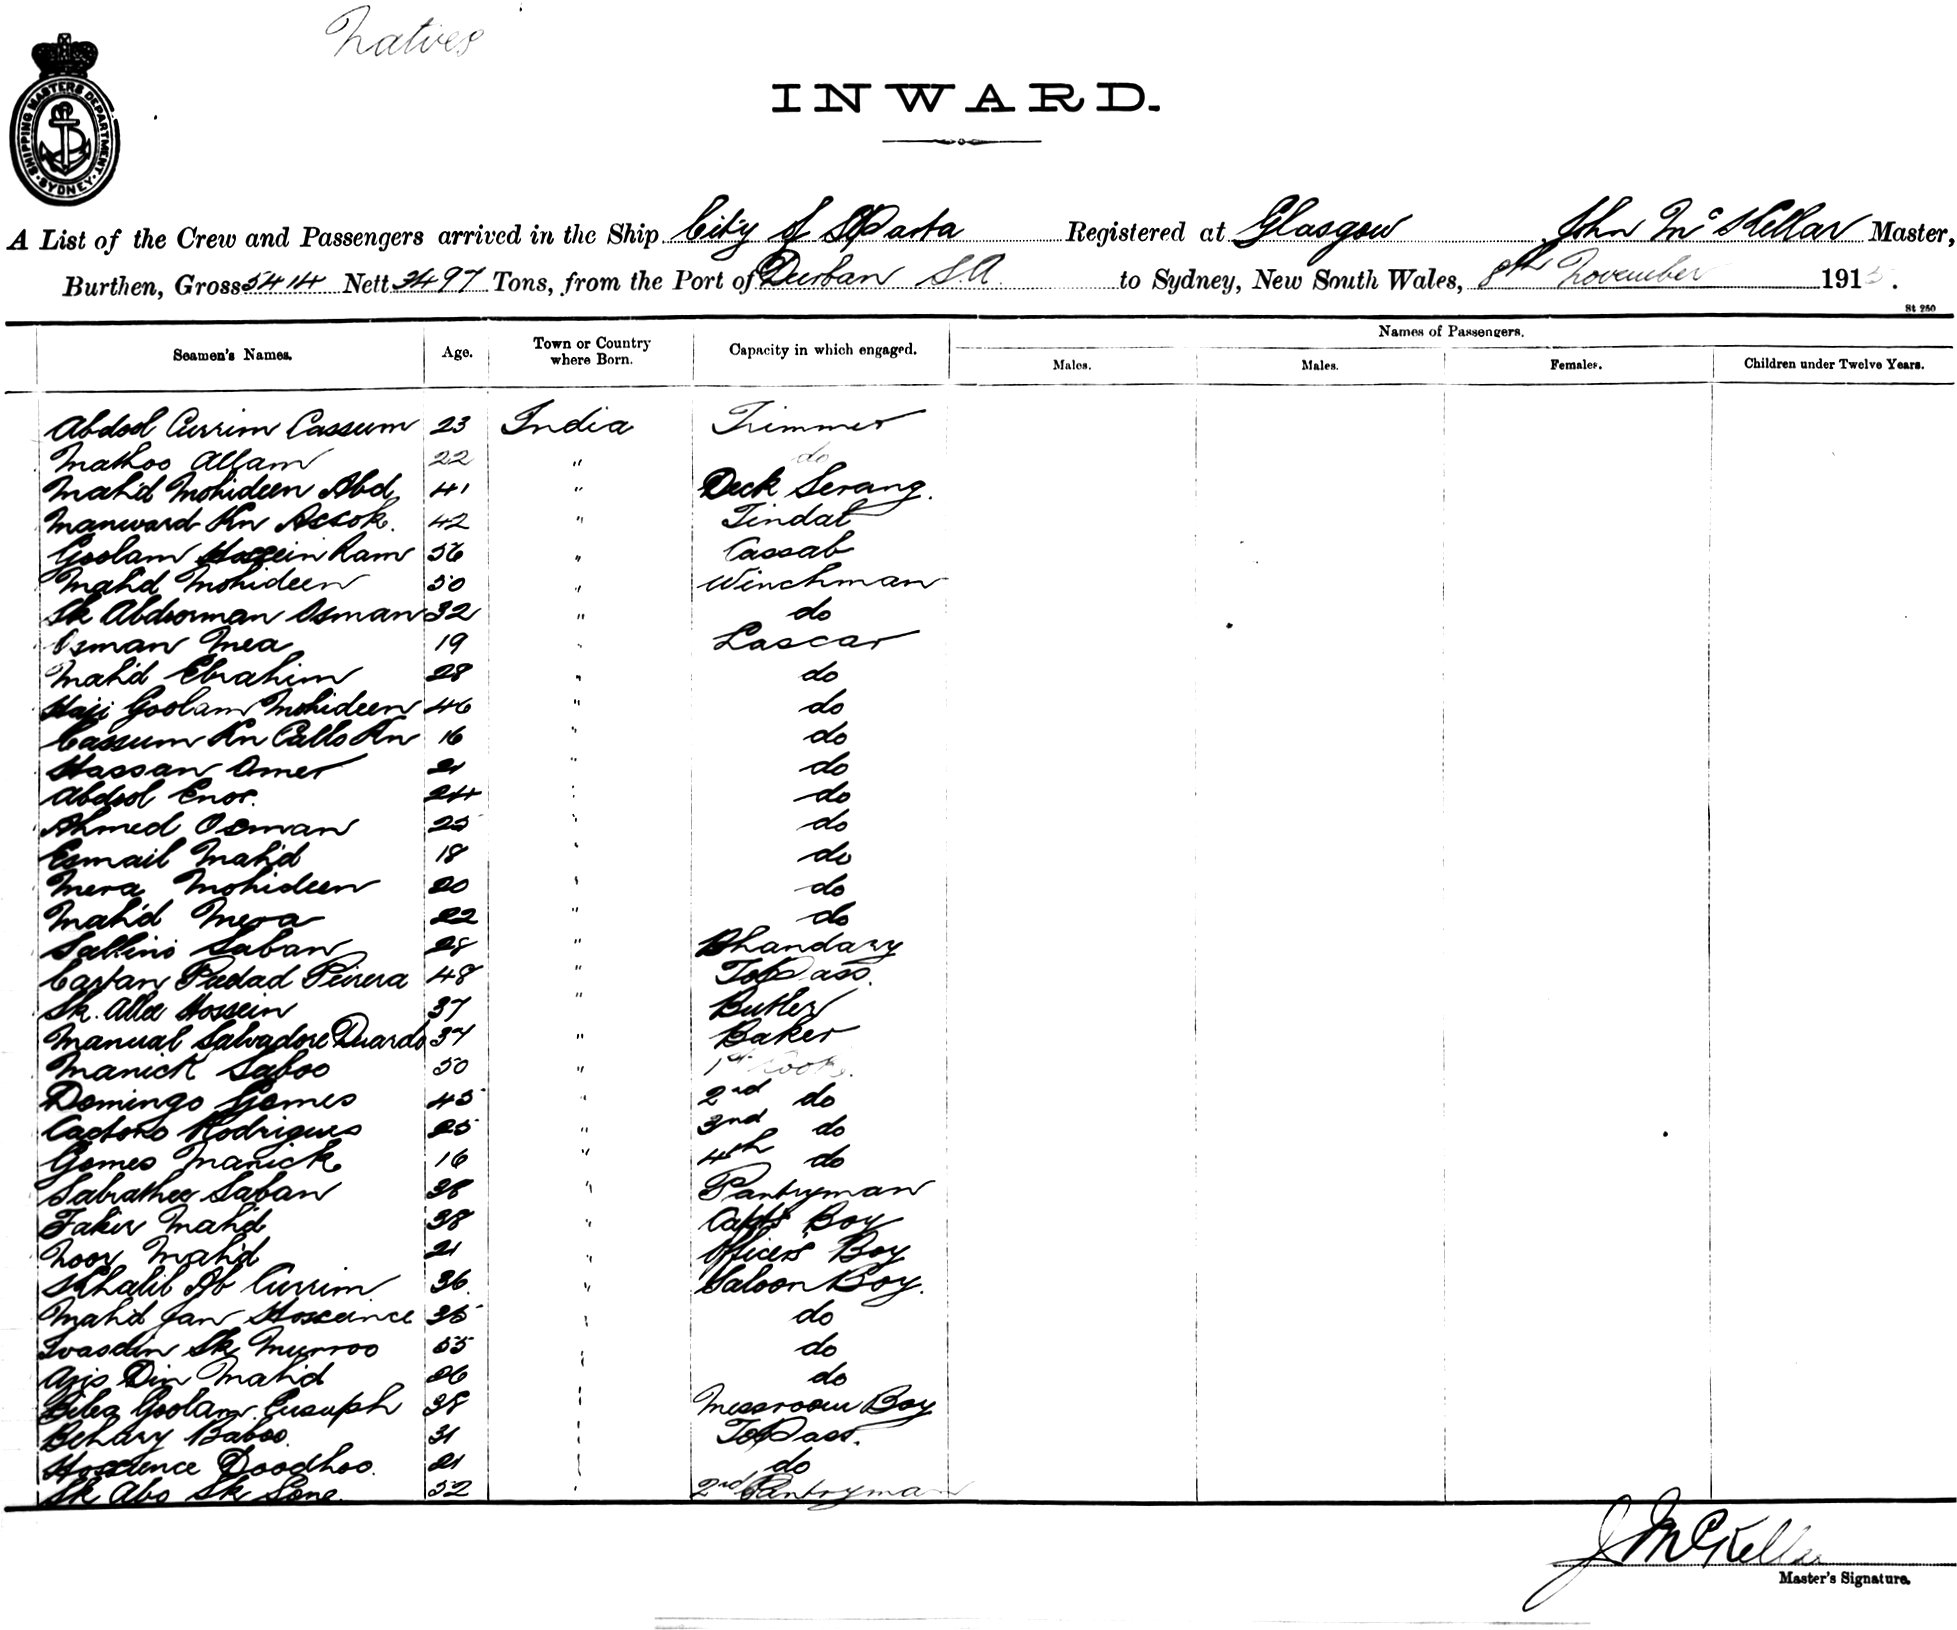 Natives
SHIPPING MASTERS DEPARTMENT. SYDNEY.
INWARD.
A List of the Crew and Passengers arrived in the Ship City of Sparta Registered at Glasgow John McKellar Master,
Burthen, Gross 5414 Nett 3497 Tons, from the Port of Durban S.A. to Sydney, New South Wales, 8th November 1915.
St 250
Seamen's Names. Age. Town or Country where Born. Capacity in which engaged. Names of Passengers.
Males. Males. Females. Children under Twelve Years.
Abdool Currim Cassum 23 India Trimmer
Mathoo Allam 22 " do
Mah'd Mohideen Abd 41 " Deck Serang.
Manward Kn Assok. 42 " Tindal
Goolam Hossein Ram 56 " Cassab
Mah'd Mohideen 50 " Winchman
Sk Abdsorman Osman 32 " do
Osman Mea 19 " Lascar
Mah'd Ebrahim 28 " do
Haji Goolam Mohideen 46 " do
Cassum Kn Callo Kn 16 " do
Hassan Omer 21 " do
Abdool Enor. 24 " do
Ahmed Osman 25 " do
Esmail Mah'd 18 " do
Mera Mohideen 20 " do
Mah'd Mera 22 " do
Saban 28 " Bhandary
Piedad Peirera 48 " Topass.
Sk. Alla Hossein 37 " Butler
Manual Salvadore Duardo 37 " Baker
Manick Saboo 50 " 1st Cook.
Domingo Gomes 45 " 2nd do
Caetono Rodrigues 25 " 3nd do
Gomes Manick 16 " 4th do
Saban 38 " Pantryman
Faker Mah'd 38 " Capt's Boy
Noor Mah'd 21 " Officers Boy
Khalil Ab Currim 36. " Saloon Boy.
Mah'd Jan Hosseince 35 " do
Sk Murroo 55 " do
Din Mah'd 26 " do
Goolam Eusuph 38 " Messroom Boy
Behary Baboo. 31 " Topass.
Doodhoo. 21 " do
Sk Abo Sk Sone. 52 " 2nd Pantryman
J McKellar
Master's Signature.